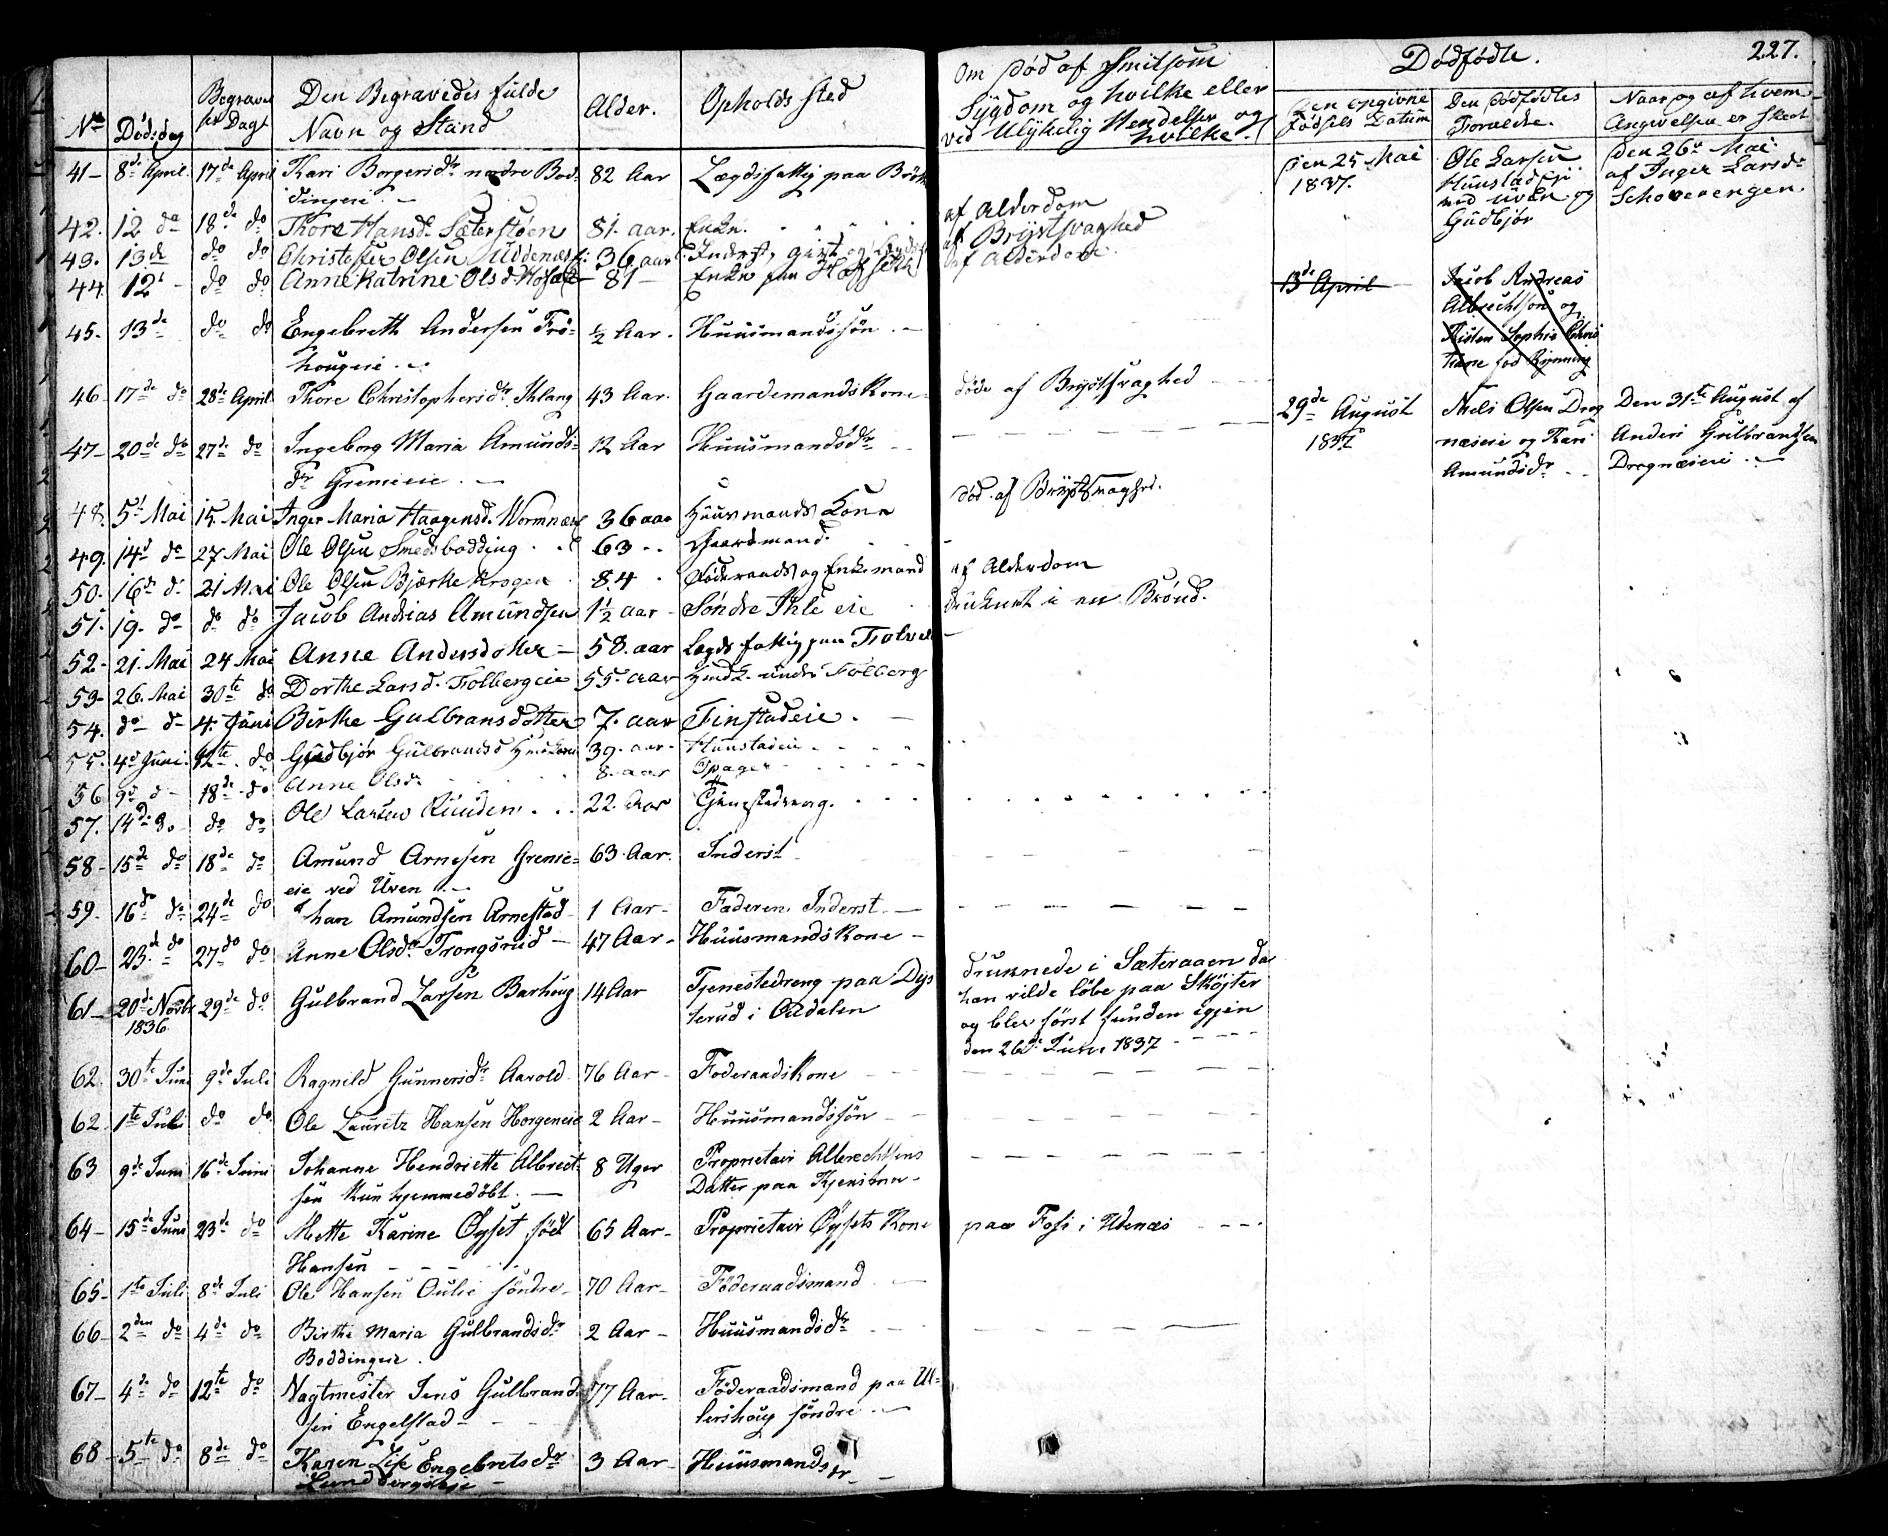 227.
No Dødsdag Begravelses Dagt Den Begravedes fulde Navn og Stand Alder. Opholds sted
Om Død af Smitsom Sygdom og hvilke eller ved Ulykelig Hendelser og hvilke.
Dødfødte.
Den opgivne Fødsels Datum Den Dødfødtes Forældre. Naar og af hvem Angivelsen er skeet
41- 8de April 17de April Kari Borgersdr nædre Bod- 82 Aar Lægdsfattig paa
dingeie -
42. 12 do 18de do Thore Hansd. Sæterstøen 81. aar. Enke. af Alderdom
43. 13de do do Christopher Olsen Uddenæs 36 aar Inderst, gift af Brystsvaghed
44 12t - do do Anne Katrine Olsd. 81 - Enke af Alderdom.
45. 13de do do Engebreth Andersen Frø- ½ Aar. Huusmandssøn. -
hougeie. -
46 17de do 28de April Thore Christophersdr Ihlang 43 Aar. Gaardemandskone døde af Brystsvaghed
47- 20de do 27de do Ingeborg Maria Amunds- 12 Aar Huusmandsdr
dr Gremieie. -
48. 5t Mai 15. Mai Inger Maria Haagensd. Wormnæs 36 aar Huusmands Kone død af Brystsvaghed.
49. 14d do 27 Mai Ole Olsen Smedsbodding 63 Gaardmand.
50. 16de d. 21 Mai Ole Olsen Bjærke krogen 84 Føderaads og Enkemand af Alderdom
51. 19. do do do Jacob Andreas Amundsen 1½ aar Søndre Ihle eie druknet i en Brønd.
52- 21. Mai 24 Mai Anne Andersdotter 58. aar Lægds fattig paa
53- 26. Mai 30te do Dorthe Larsd. Folbergeie 55. aar under Folberg
54. do d- 4. Juni Birthe Gulbransdotter 7. aar Finstadeie. -
55. 4d Juni 12te do Gudbjør Gulbrandsd 39. aar Huustadeie
56 9d d- 18de do Anne Olsd. 8. aar Opager
57. 14d do do do Ole Larsen Ruuden 22. Aar Tjenestedreng.
58- 15de do 18de do Amund Arnesen Gremie- 63. Aar. Inderst
eie ved Uven. -
59. 16de do 24de do Johan Amundsen Arnestad 1 Aar Faderen Inderst. -
60- 23de do 27de do Anne Olsdr Trongsrud 47 Aar - Huusmandskone -
61- 20de Novbr 29de do Gulbrand Larsen Barhoug 14 Aar Tjenestedreng paa Dys-
1836 terud i Oudalen
druknede i Sæteraaen da
han vilde løbe paa Skøjter
og blev først funden igjen
den 26de Juni 1837
62. 30te Juni 9de Juli Ragnild Gunnersdr Aarold 76 Aar - Føderaadskone
62- 1te Juli do do Ole Lauritz Hansen Horgeneie 2 Aar - Huusmandssøn
63 9de Juni 16de Juni Johanne Hendriette Albrect- 8 Uger Proprietair Albrechtsens
sen kun hjemmedøbt. - Datter paa
64- 15de Juni 23de do Mette Karine Øyset født 65 Aar- Proprietair Øysets Kone paa Fosi i Udenæs
Hansen
65- 1te Juli 8de Juli Ole Hansen Oulie søndre 70 Aar- Føderaadsmand
66- 2den do 4de do Birthe Maria Gulbrandsdr 2 Aar - Huusmandsdr
Boddingeie.
67- 4de do 12te do Vagtmester Jens Gulbrand- 77 Aar- Føderaadsmand paa Ul-
sen Engelstad lershoug søndre. -
68 - 5te do 8de do Karen Lise Engebretsdr 3 Aar - Huusmandsdr -
Lundbergseie -
Den 25 Mai
1837.
Ole Larsen
Huustadeie
ved Uven og
Gudbjør
Den 26de Mai
af Inger Larsdr
Schoverengen
13de April
Jacob Andreas
Albrechtson og
Kisten Sophie Chris
tiane fød Rynning
29de August
1837
Niels Olsen Drog
næseie og Kari
Amundsdr
Den 31te August af
Anders Gulbrandsen
Drognæseie. -